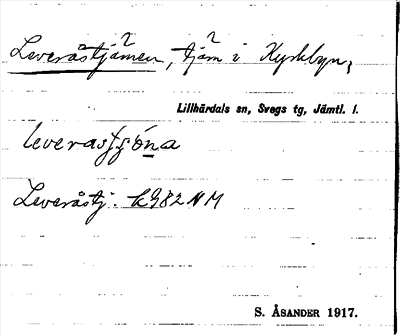 Leveråstjärnen, tjärn i Kyrkbyn,
Lillhärdals sn, Svegs tg, Jämtl. l.
leverastjóna
Leveråstj. K 982 NM
S. ÅSANDER 1917.